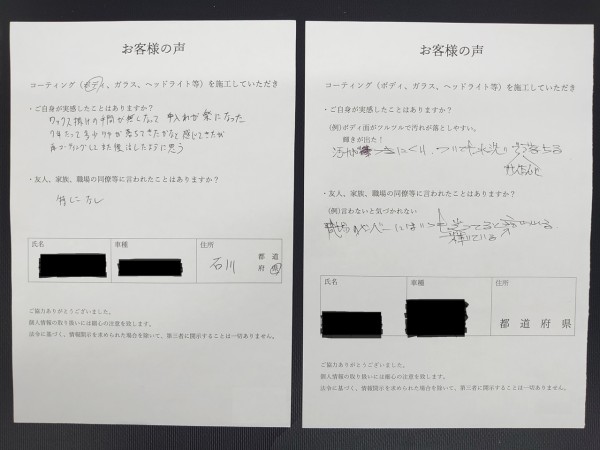 お客様の声
コーティング（ボディ、ガラス、ヘッドライト等）を施工していただき
・ご自身が実感したことはありますか？
ワックス掛けの手間が無しなって 手入れが楽になった
・友人、家族、職場の同僚等に言われたことはありますか？
特になし
氏名
車種
住所
石川
都 道
府 県
ご協力ありがとうございました。
個人情報の取り扱いには細心の注意を致します。
法令に基づく、情報開示を求められた場合を除いて、第三者に開示することは一切ありません。
お客様の声
コーティング（ボディ、ガラス、ヘッドライト等）を施工していただき
・ご自身が実感したことはありますか？
(例)ボディ面がツルツルで汚れが落としやすい。
輝きが出た！
・友人、家族、職場の同僚等に言われたことはありますか？
(例)言わないと気づかれない
輝いている
氏名
車種
住所
都 道 府 県
ご協力ありがとうございました。
個人情報の取り扱いには細心の注意を致します。
法令に基づく、情報開示を求められた場合を除いて、第三者に開示することは一切ありません。